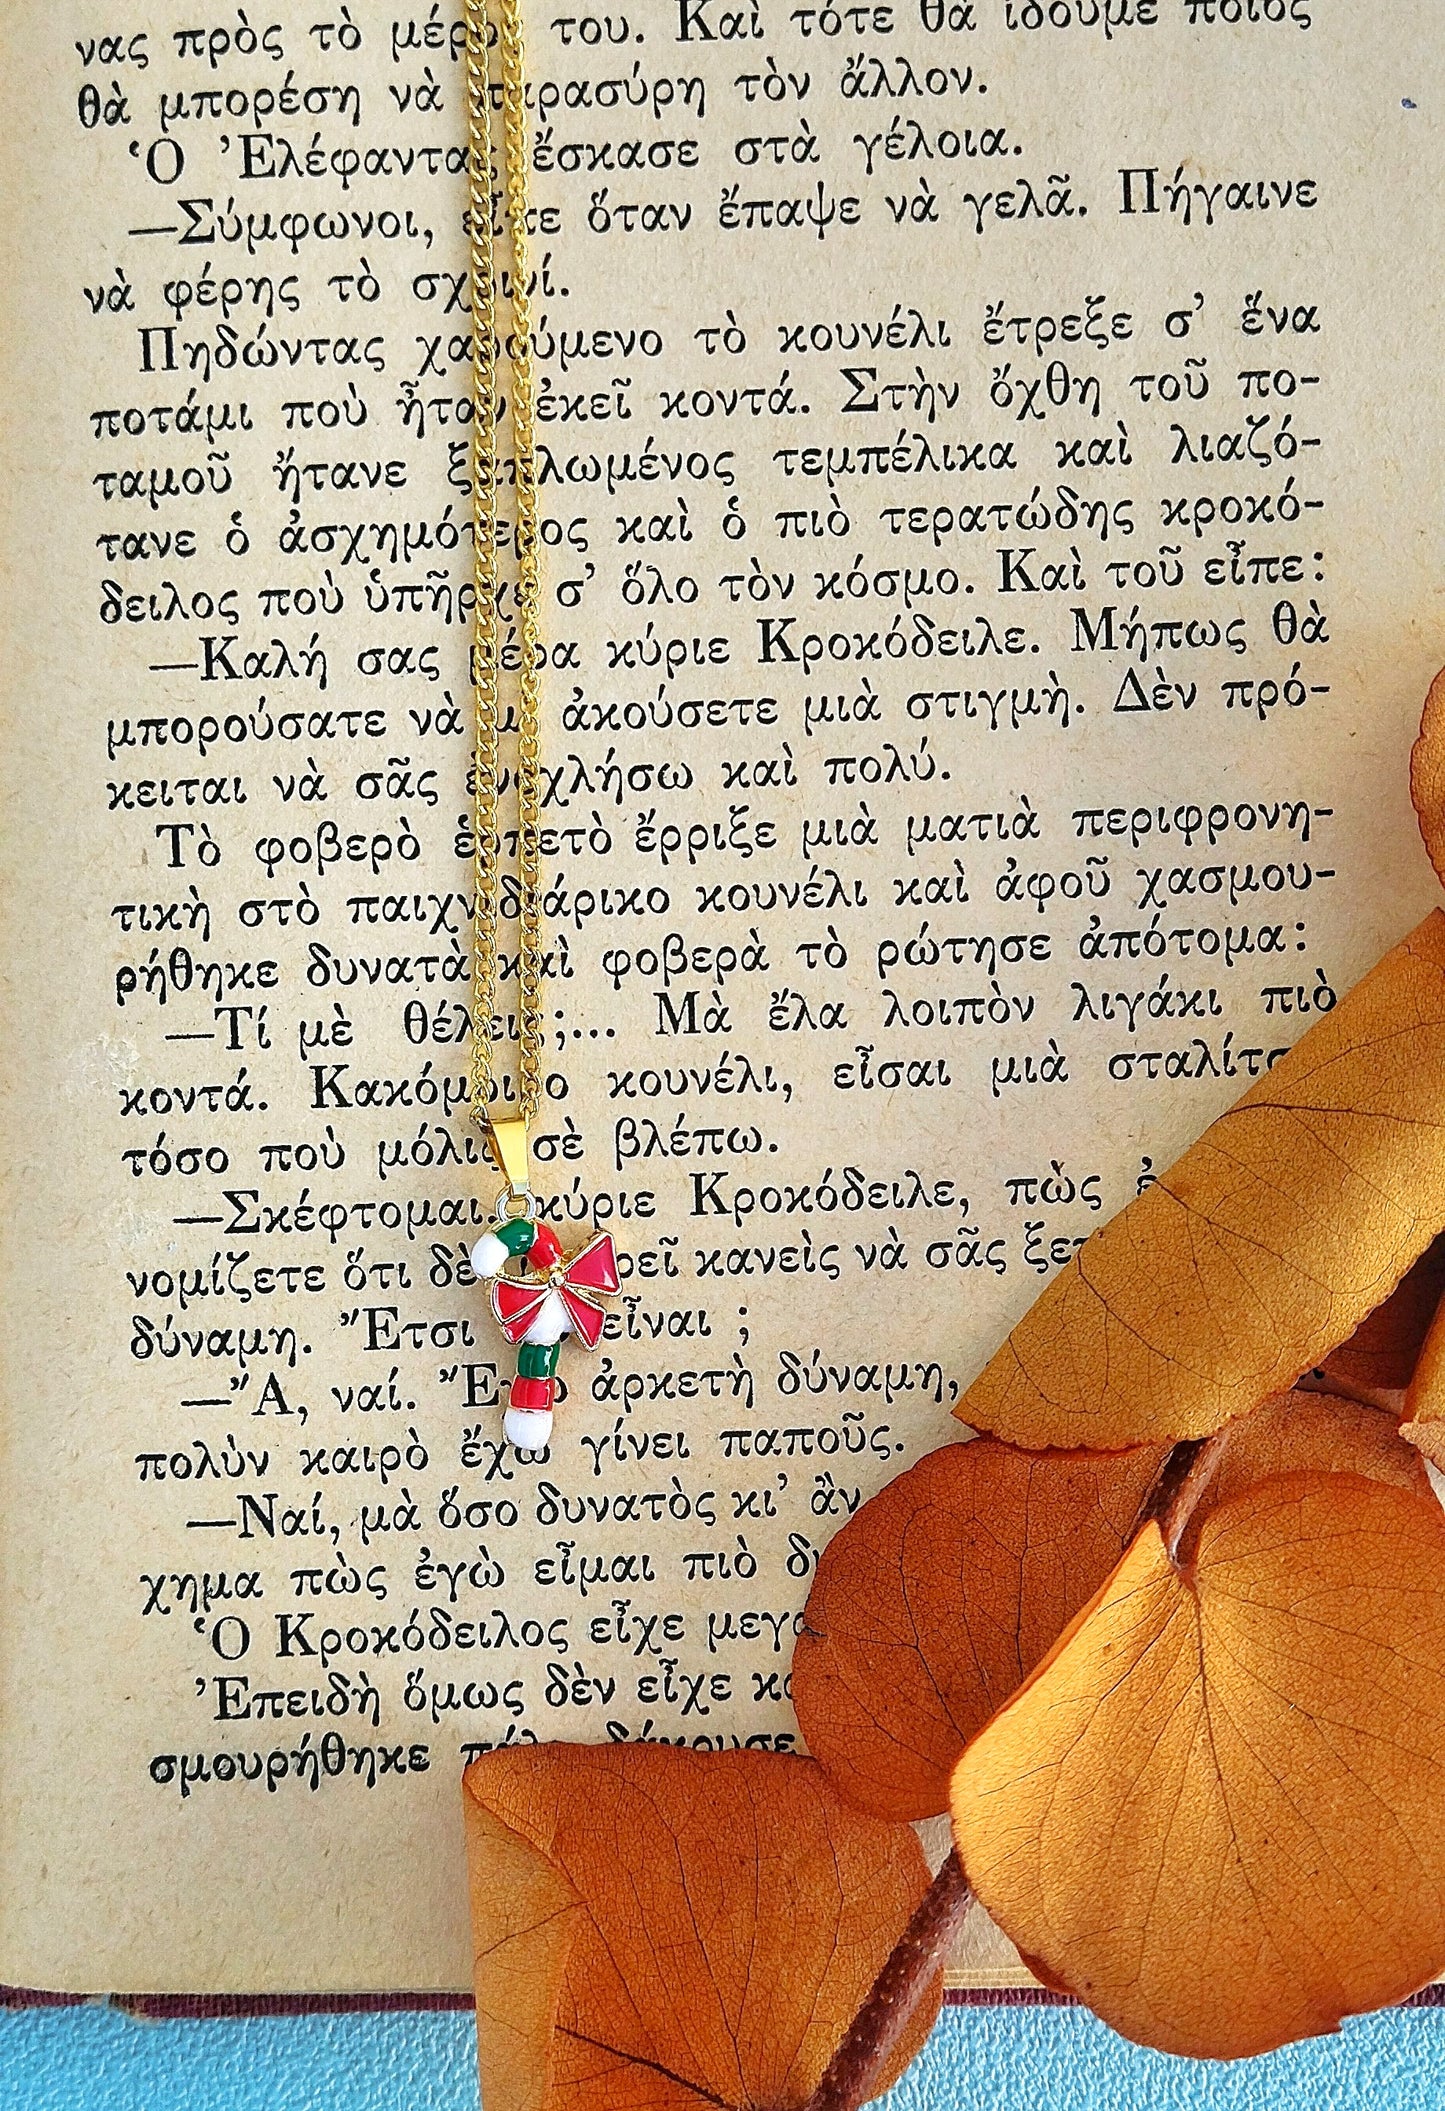 νας πρὸς τὸ μέρος του. Καὶ τότε θὰ ἰδοῦμε ποιὸς
θὰ μπορέση νὰ παρασύρη τὸν ἄλλον.
Ὁ Ἐλέφαντας ἔσκασε στὰ γέλοια.
—Σύμφωνοι, εἶπε ὅταν ἔπαψε νὰ γελᾶ. Πήγαινε
νὰ φέρης τὸ σχοινί.
Πηδώντας χαρούμενο τὸ κουνέλι ἔτρεξε σ’ ἕνα
ποτάμι ποὺ ἦταν ἐκεῖ κοντά. Στὴν ὄχθη τοῦ πο-
ταμοῦ ἤτανε ξαπλωμένος τεμπέλικα καὶ λιαζό-
τανε ὁ ἀσχημότερος καὶ ὁ πιὸ τερατώδης κροκό-
δειλος ποὺ ὑπῆρχε σ’ ὅλο τὸν κόσμο. Καὶ τοῦ εἶπε:
—Καλή σας μέρα κύριε Κροκόδειλε. Μήπως θὰ
μπορούσατε νὰ μ’ ἀκούσετε μιὰ στιγμὴ. Δὲν πρό-
κειται νὰ σᾶς ἐνοχλήσω καὶ πολύ.
Τὸ φοβερὸ ἑρπετὸ ἔρριξε μιὰ ματιὰ περιφρονη-
τικὴ στὸ παιχνιδιάρικο κουνέλι καὶ ἀφοῦ χασμου-
ρήθηκε δυνατὰ καὶ φοβερὰ τὸ ρώτησε ἀπότομα:
—Τί μὲ θέλεις;... Μὰ ἔλα λοιπὸν λιγάκι πιὸ
κοντά. Κακόμοιρο κουνέλι, εἶσαι μιὰ
τόσο ποὺ μόλις σὲ βλέπω.
—Σκέφτομαι, κύριε Κροκόδειλε, πὼς
νομίζετε ὅτι δὲν μπορεῖ κανεὶς νὰ σᾶς
δύναμη. Ἔτσι δὲν εἶναι ;
—Ἄ, ναί. Ἔχω ἀρκετὴ δύναμη,
πολὺν καιρὸ ἔχω γίνει παποῦς.
—Ναί, μὰ ὅσο δυνατὸς κι’ ἂν
χημα πὼς ἐγὼ εἶμαι πιὸ
Ὁ Κροκόδειλος εἶχε
Ἐπειδὴ ὅμως δὲν εἶχε
σμουρήθηκε